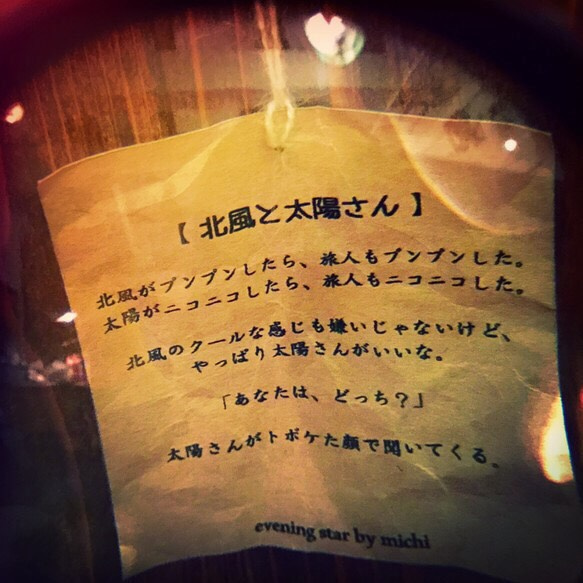 【北風と太陽さん】
北風がプンプンしたら、旅人もプンプンした。
太陽がニコニコしたら、旅人もニコニコした。
北風のクールな感じも嫌いじゃないけど、
やっぱり太陽さんがいいな。
「あなたは、どっち？」
太陽さんがトボケた顔で聞いてくる。
evening star by michi